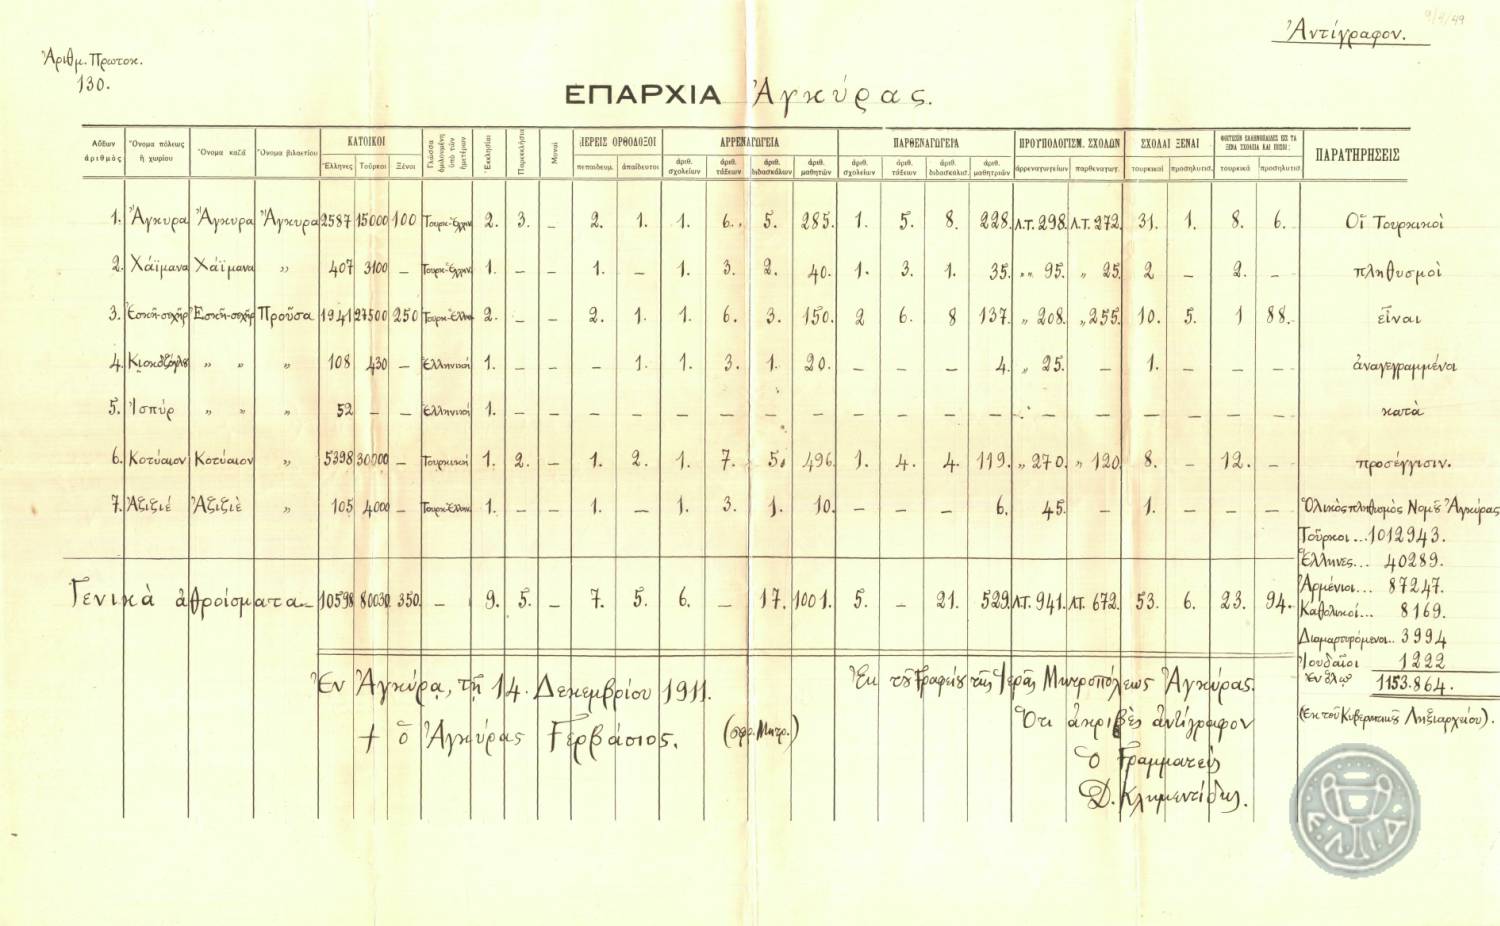 9/4/49
Ἀντίγραφον.
Ἀριθμ. Πρωτοκ.
130.
ΕΠΑΡΧΙΑ Ἀγκύρας.
Αὔξων ἀριθμὸς | Ὄνομα πόλεως ἢ χωρίου | Ὄνομα καζᾶ | Ὄνομα βιλαετίου | ΚΑΤΟΙΚΟΙ | Γλῶσσα ὁμιλουμένη ὑπὸ τῶν ἡμετέρων | Ἐκκλησίαι | Παρεκκλήσια | Μοναί | ΙΕΡΕΙΣ ΟΡΘΟΔΟΞΟΙ | ΑΡΡΕΝΑΓΩΓΕΙΑ | ΠΑΡΘΕΝΑΓΩΓΕΙΑ | ΠΡΟΥΠΟΛΟΓΙΣΜ. ΣΧΟΛΩΝ | ΣΧΟΛΑΙ ΞΕΝΑΙ | ΦΟΙΤΩΣΙΝ ΕΛΛΗΝΟΠΑΙΔΕΣ ΕΙΣ ΤΑ ΞΕΝΑ ΣΧΟΛΕΙΑ ΚΑΙ ΠΟΣΟΙ; | ΠΑΡΑΤΗΡΗΣΕΙΣ
Ἕλληνες | Τοῦρκοι | Ξένοι | πεπαιδευμ. | ἀπαίδευτοι | ἀριθ. σχολείων | ἀριθ. τάξεων | ἀριθ. διδασκάλων | ἀριθ. μαθητῶν | ἀριθ. σχολείων | ἀριθ. τάξεων | ἀριθ. διδασκαλισ. | ἀριθ. μαθητριῶν | ἀρρεναγωγείων | παρθεναγωγ. | τουρκικαί | προσηλυτισ. | τουρκικά | προσηλυτισ
1. Ἄγκυρα Ἄγκυρα Ἄγκυρα 2587 15000 100 Τουρκ-Ἑλλην 2. 3. – 2. 1. 1. 6. 5. 285. 1. 5. 8. 228. Λ.Τ. 298. Λ.Τ. 272. 31. 1. 8. 6. Οἱ Τουρκικοὶ
2. Χάϊμανα Χάϊμανα " 407 3100 – Τουρκ-Ἑλλην 1. – – 1. – 1. 3. 2. 40. 1. 3. 1. 35. " 95. " 25. 2 – 2. – πληθυσμοὶ
3. Ἐσκῆ-σεχὴρ Ἐσκῆ-σεχὴρ Προῦσα 1941 27500 250 Τουρκ-Ἑλλην 2. – – 2. 1. 1. 6. 3. 150. 2 6. 8 137. " 208. " 255. 10. 5. 1 88. εἶναι
4. " " " 108 430 – Ἑλληνική 1. – – – 1. 1. 3. 1. 20. – – – 4. " 25. – 1. – – – ἀναγεγραμμένοι
5. Ἰσπὺρ " " " 52 – – Ἑλληνική 1. – – – – – – – – – – – – – – – – – – κατὰ
6. Κοτύαιον Κοτύαιον " 5398 30000 – Τουρκική 1. 2. – 1. 2. 1. 7. 5. 496. 1. 4. 4. 119. " 270. " 120. 8. – 12. – προσέγγισιν.
7. Ἀζιζιέ Ἀζιζιὲ " 105 4000 – Τουρκ-Ἑλλην. 1. – – 1. – 1. 3. 1. 10. – – – 6. 45. – 1. – – –
Ὁλικὸς πληθυσμὸς Νομοῦ Ἀγκύρας
Τοῦρκοι...1012943.
Ἕλληνες... 40289.
Γενικὰ ἀθροίσματα – 10598 80030 350. – 9. 5. – 7. 5. 6. – 17. 1001. 5. – 21. 529. Λ.Τ. 941. Λ.Τ. 672. 53. 6. 23. 94.
Ἀρμένιοι... 87247.
Καθολικοί... 8169.
Διαμαρτυρόμενοι.. 3994
Ἰουδαῖοι 1222
Ἐν ὅλῳ 1153.864.
(Ἐκ τοῦ Κυβερνητικοῦ Ληξιαρχείου).
Ἐν Ἀγκύρᾳ, τῇ 14. Δεκεμβρίου 1911.
† ὁ Ἀγκύρας Γερβάσιος. (σφρ. Μητρ.)
Ἐκ τοῦ Γραφείου τῆς Ἱερᾶς Μητροπόλεως Ἀγκύρας.
Ὅτι ἀκριβὲς ἀντίγραφον
Ὁ Γραμματεὺς
Δ. Κλημεντίδης.
Ε Λ Ι Α